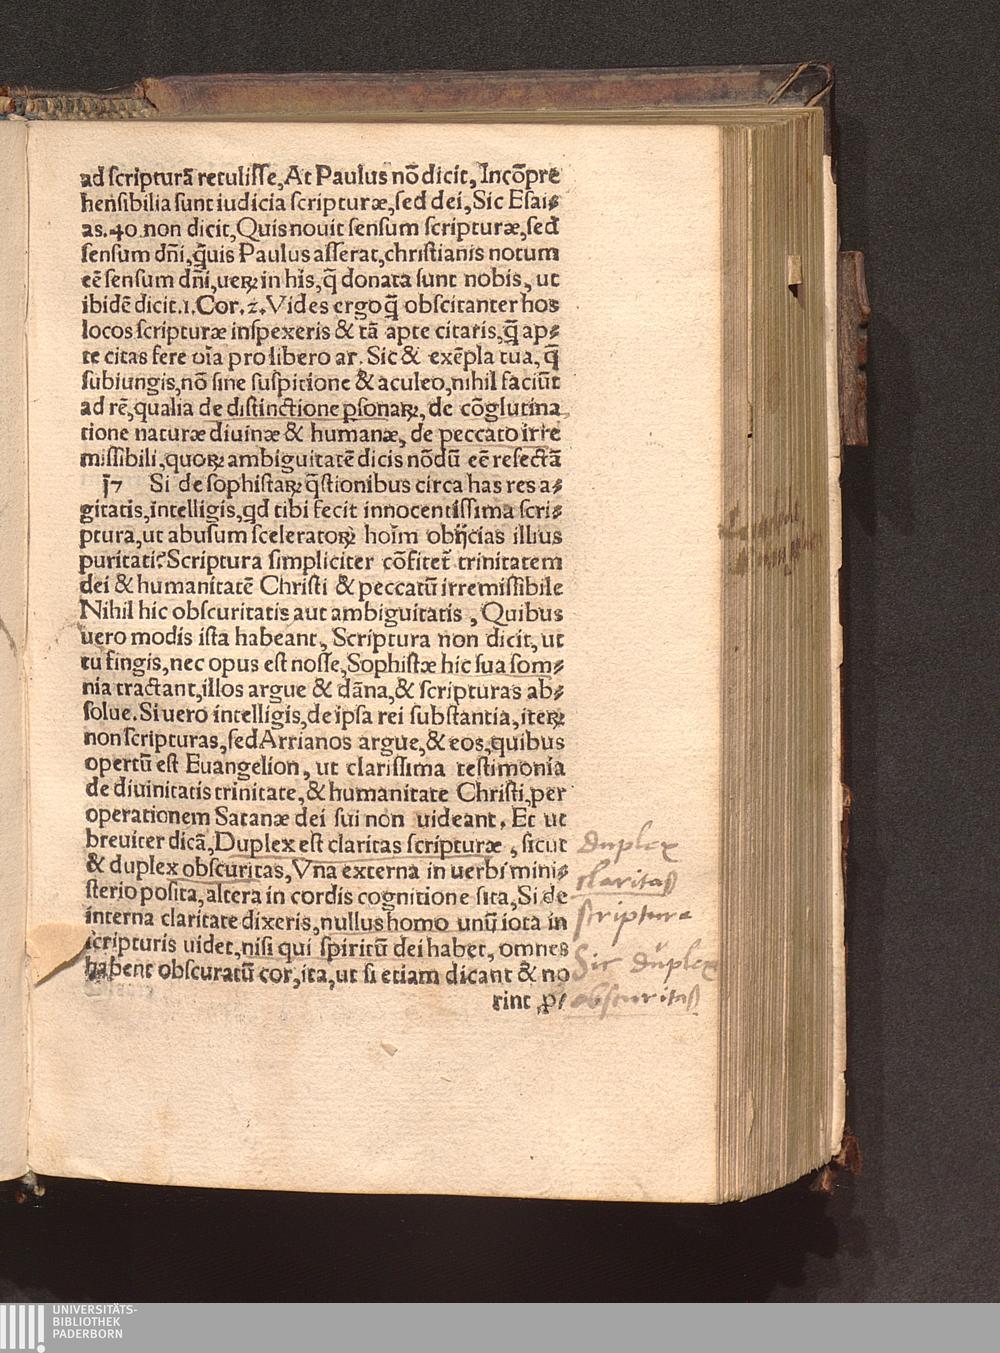 ad scripturā retulisse, At Paulus nō dicit, Incōprē
hensibilia sunt iudicia scripturæ, sed dei, Sic Esai⸗
as. 40 non dicit, Quis nouit sensum scripturæ, sed
sensum dn̄i, q̄uis Paulus asserat, christianis notum
eē sensum dn̄i, ueꝝ in his, q̄ donata sunt nobis, ut
ibidē dicit. 1. Cor. 2. Vides ergo q̄ obscitanter hos
locos scripturæ inspexeris & tā apte citaris, q̄ ap⸗
te citas fere oīa pro libero ar. Sic & exēpla tua, q̄
subiungis, nō sine suspitione & aculeo, nihil faciūt
ad rē, qualia de distinctione ꝑsonaꝝ, de cōglutina
tione naturæ diuinæ & humanæ, de peccato irre
missibili, quoꝝ ambiguitatē dicis nōdū eē resectā
Si de sophistaꝝ q̄stionibus circa has res a⸗
gitatis, intelligis, qd tibi fecit innocentissima scri⸗
ptura, ut abusum sceleratoꝝ hoīm obijcias illius
puritati? Scriptura simpliciter cōfitet᷑ trinitatem
dei & humanitatē Christi & peccatū irremissibile
Nihil hic obscuritatis aut ambiguitatis, Quibus
uero modis ista habeant, Scriptura non dicit, ut
tu fingis, nec opus est nosse, Sophistæ hic sua som⸗
nia tractant, illos argue & dāna, & scripturas ab⸗
solue. Si uero intelligis, de ipsa rei substantia, iteꝝ
non scripturas, sed Arrianos argue, & eos, quibus
opertū est Euangelion, ut clarissima testimonia
de diuinitatis trinitate, & humanitate Christi, per
operationem Satanæ dei sui non uideant. Et ut
breuiter dicā, Duplex est claritas scripturæ, sicut
& duplex obscuritas, Vna externa in uerbi mini⸗
sterio posita, altera in cordis cognitione sita, Si de
interna claritate dixeris, nullus homo unū iota in
scripturis uidet, nisi qui spiritū dei habet, omnes
habent obscuratū cor, ita, ut si etiam dicant & no
rint ꝓ⸗
duplex
claritas
scripturæ
Sic duplex
obscuritas
UNIVERSITÄTS-
BIBLIOTHEK
PADERBORN